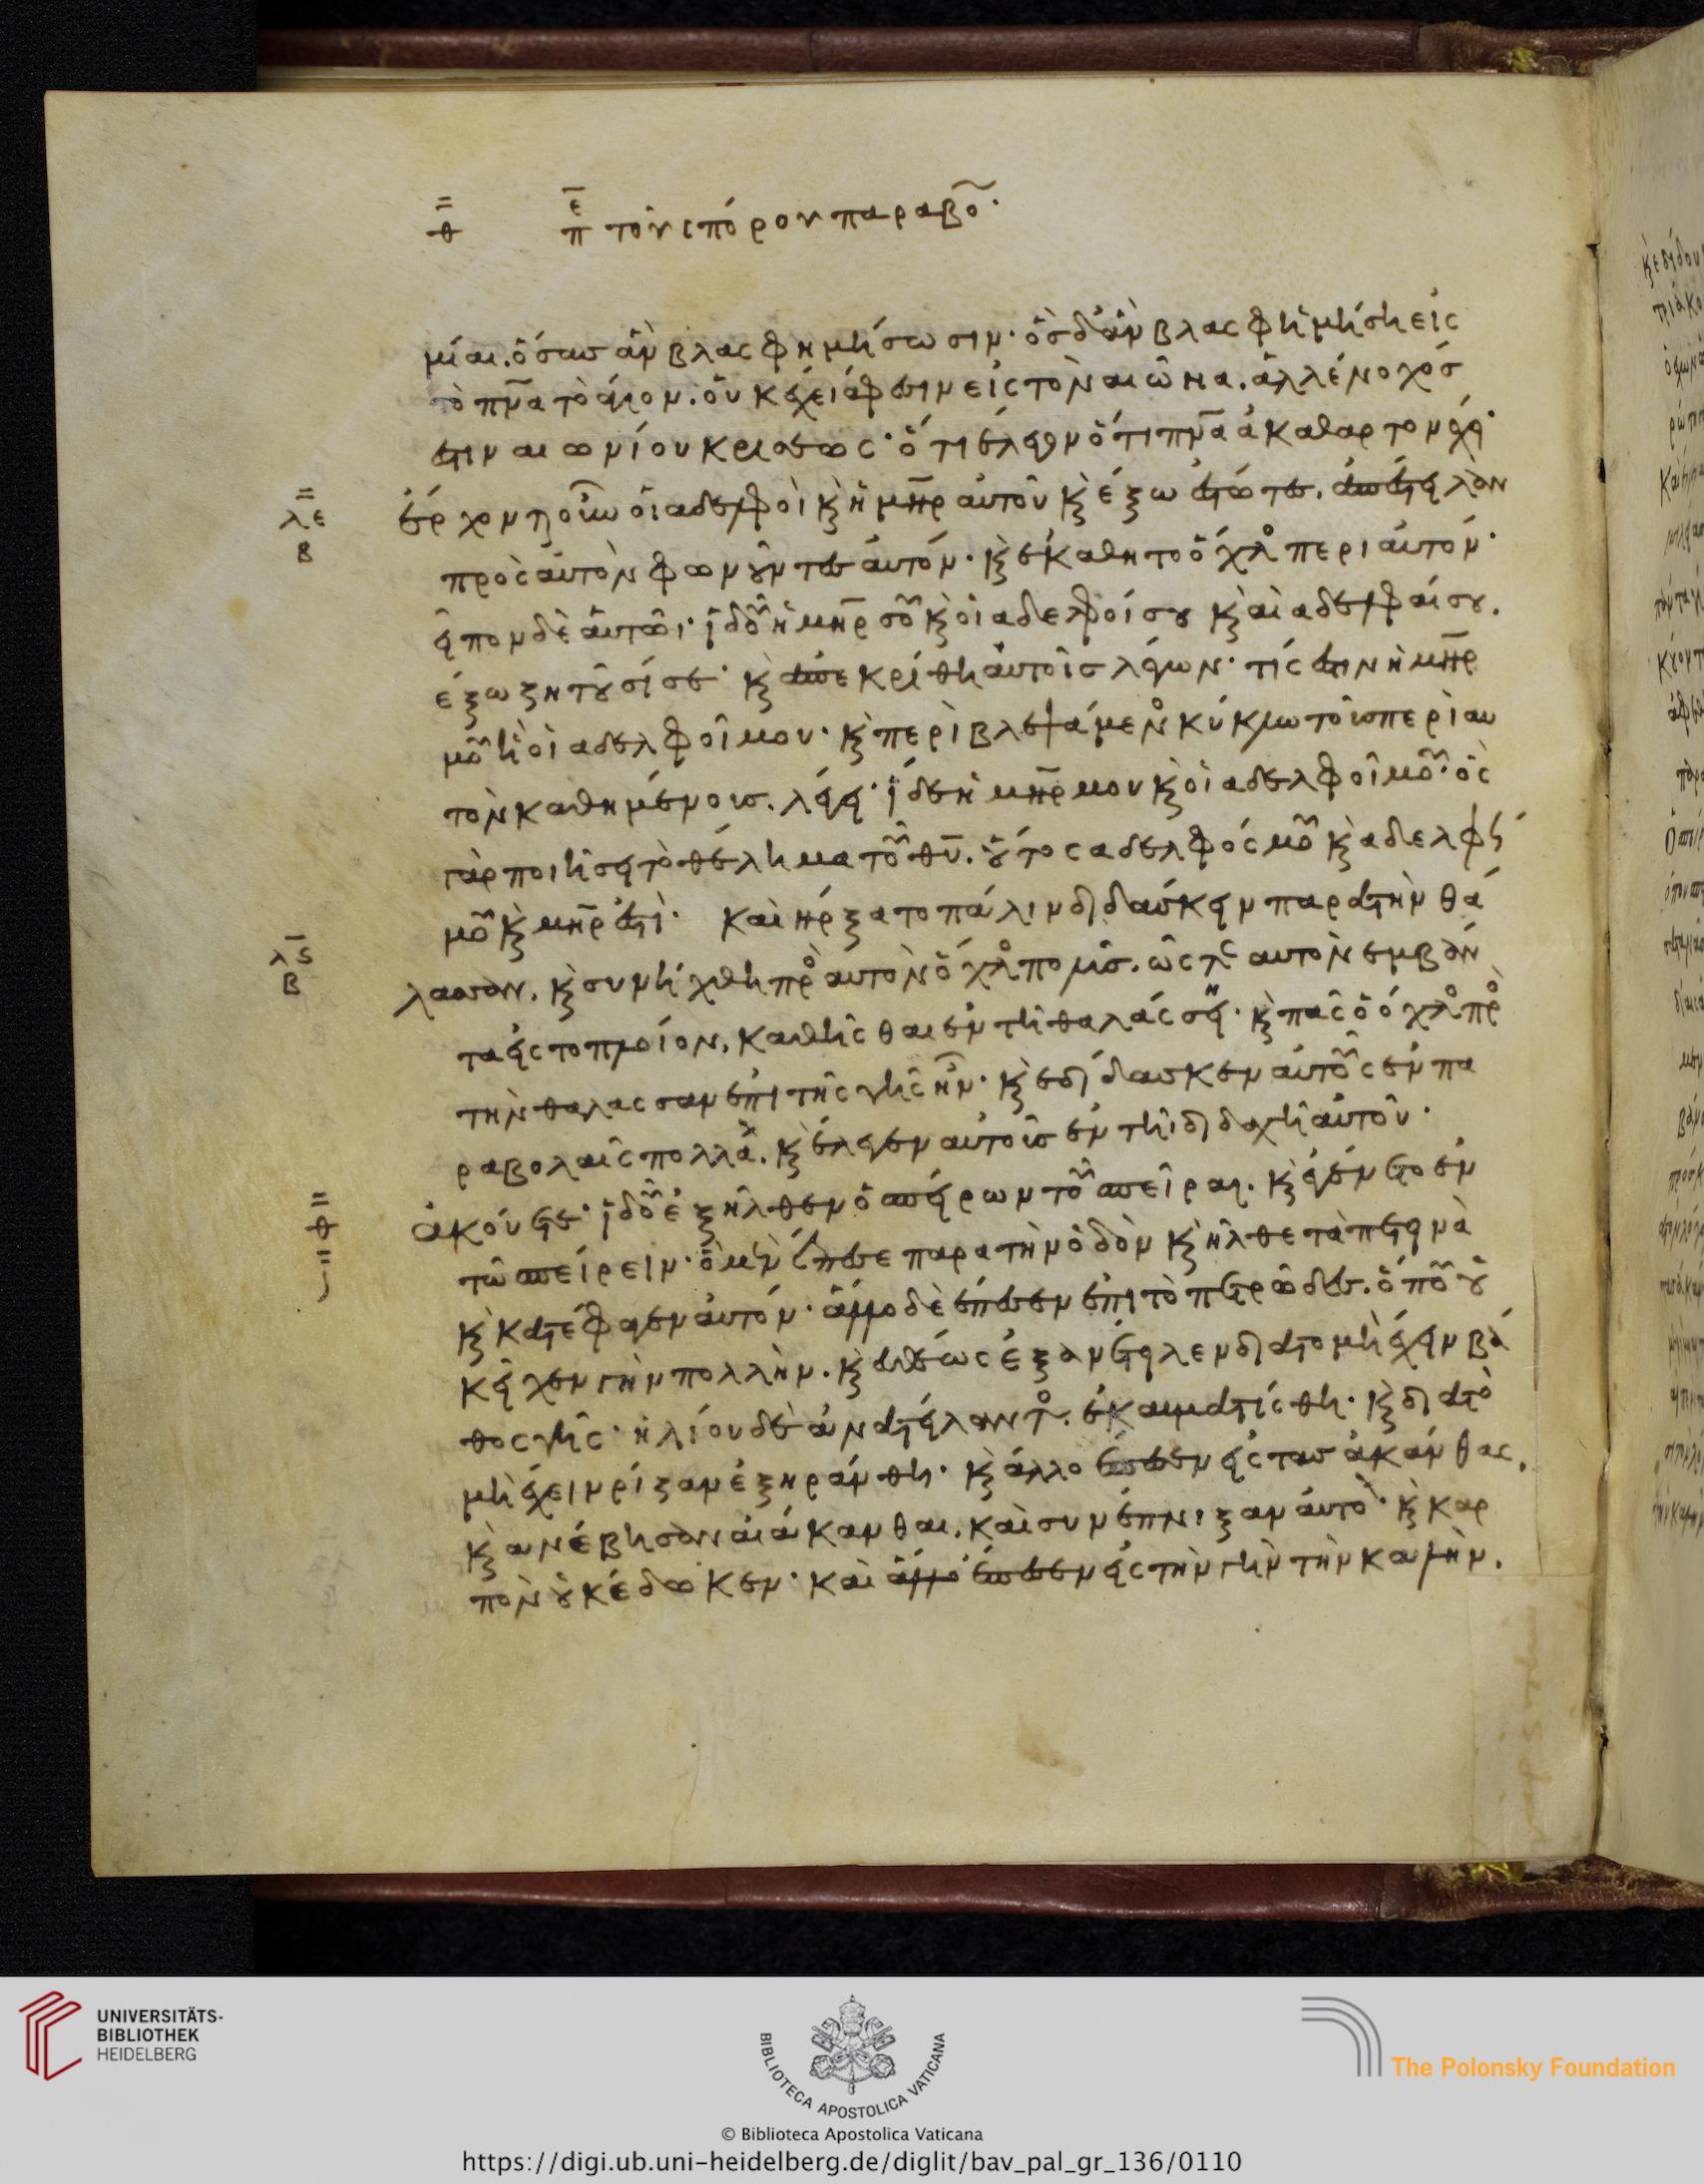 θ ε̅ π τοῦ σπόρου παραβο̃·
μίαι. ὅσας ἂν βλασφημήσωσιν· ὃς δ' ἂν βλασφημήση εἰς
τὸ πν̅α τὸ ἅγιον. οὐκ ἔχει ἄφεσιν εἰς τὸν αἰῶνα. ἀλλ' ἔνοχός
ἐστιν αἰωνίου κρίσεως· ὅτι ἔλεγον ὅτι πν̅α ἀκάθαρτον ἔχει·
λε β ἔρχονται οὖν οἱ ἀδελφοὶ κ̀ ἡ μη̅ρ αὐτοῦ κ̀ ἔξω ἑστῶτες. ἀπέστειλαν
πρὸς αὐτὸν φωνοῦντες αὐτόν· κ̀ ἐκάθητο ὄχλος περὶ αὐτόν·
εἶπον δὲ αὐτῶ· ἰδοῦ ἡ μη̅ρ σοῦ κ̀ οἱ ἀδελφοί σου κ̀ αἱ ἀδελφαί σου.
ἔξω ζητοῦσί σε· κ̀ ἀπεκρίθη αὐτοῖς λέγων· τίς ἐστιν ἡ μη̅ρ
μοῦ ἢ οἱ ἀδελφοί μου· κ̀ περιβλεψάμενος κύκλω τοὺς περὶ αὐ
τὸν καθημένους. λέγει· ἴδε ἡ μη̅ρ μου κ̀ οἱ ἀδελφοί μοῦ· ὃς
γὰρ ποιήσει τὸ θέλημα τοῦ θ̅υ. οὗτος ἀδελφός μοῦ κ̀ ἀδελφή
μοῦ κ̀ μη̅ρ ἐστί· καὶ ἤρξατο πάλιν διδάσκειν παρὰ τὴν θά
λϛ β λασσαν. κ̀ συνήχθη πρὸς αὐτὸν ὄχλος πολύς. ὥστε αὐτὸν ἐμβάν
τα εἰς τὸ πλοίον. καθῆσθαι ἐν τῆ θαλάσση· κ̀ πᾶς ὁ ὄχλος πρὸς
τὴν θάλασσαν ἐπὶ τῆς γῆς ἦν· κ̀ ἐδίδασκεν αὐτοῦς ἐν πα
ραβολαῖς πολλά. κ̀ ἔλεγεν αὐτοῖς ἐν τῆ διδαχῆ αὐτοῦ·
θ ἀκούετε· ἰδοῦ ἐξῆλθεν ὁ σπείρων τοῦ σπεῖραι. κ̀ ἐγένετο ἐν
τῶ σπείρειν· ὃ μὲν ἔπεσε παρὰ τὴν ὁδὸν κ̀ ἦλθε τὰ πετεινὰ
κ̀ κατέφαγεν αὐτόν· ἄλλο δὲ ἔπεσεν ἐπὶ τὸ πετρῶδες. ὅπου οὐ
κ εἶχεν γὴν πολλὴν. κ̀ εὐθέως ἐξανέτειλεν διὰ τὸ μὴ ἔχειν βά
θος γῆς· ἡλίου δὲ ἀνατείλαντος. ἐκαυματίσθη· κ̀ διὰ τὸ
μὴ ἔχειν ρίζαν ἐξηράνθη· κ̀ ἄλλο ἔπεσεν εἰς τὰς ἀκάνθας.
κ̀ ἀνέβησαν αἱ ἄκανθαι. καὶ συνέπνιξαν αὐτὸ· κ̀ καρ
πὸν οὐκ ἔδωκεν· καὶ ἄλλο ἔπεσεν εἰς τὴν γὴν τὴν καλὴν.
UNIVERSITÄTS-
BIBLIOTHEK
HEIDELBERG
BIBLIOTECA APOSTOLICA VATICANA
The Polonsky Foundation
© Biblioteca Apostolica Vaticana
https://digi.ub.uni-heidelberg.de/diglit/bav_pal_gr_136/0110